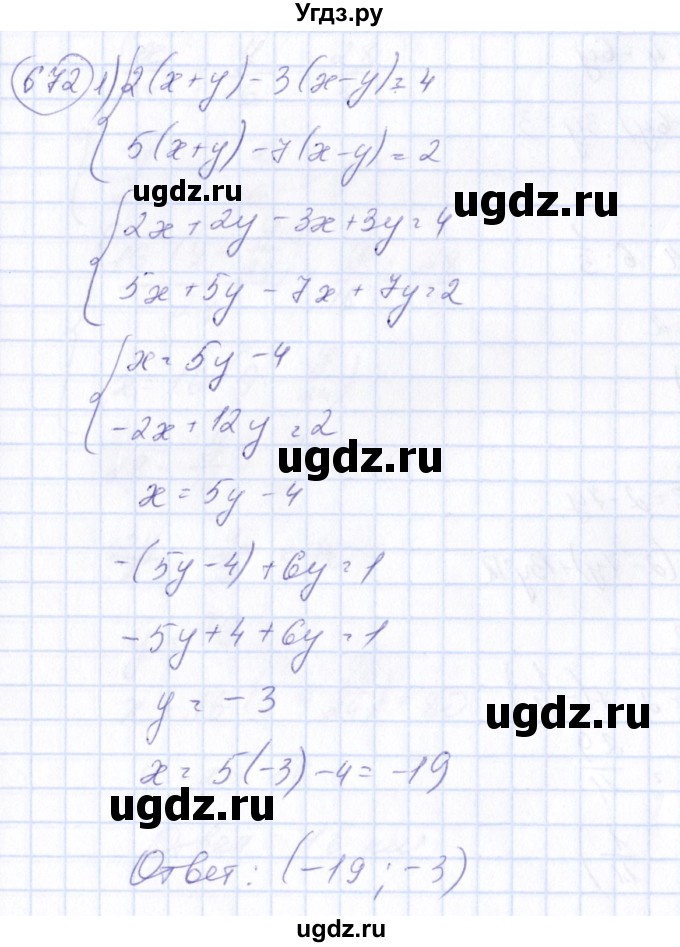 Угдз.ру
672 1) 2(x+y) - 3(x-y) = 4
5(x+y) - 7(x-y) = 2
ugdz.ru
ugdz.ru
2x + 2y - 3x + 3y = 4
5x + 5y - 7x + 7y = 2
x = 5y - 4
-2x + 12y = 2
ugdz.ru
x = 5y - 4
-(5y - 4) + 6y = 1
-5y + 4 + 6y = 1
y = -3
ugdz.ru
x = 5(-3) - 4 = -19
ugdz.ru
Ответ: (-19; -3)
ugdz.ru